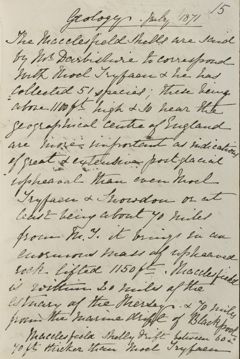 15
Geology. July 1871
The Macclesfield Shells are said
by Mr Darbishire to correspond
with Moel Tryfaen & he has
collected 51 species; these being
above 1100 ft high & so near the
geographical centre of England
are more important as indications
of great & extensive post glacial
upheaval than even Moel
Tryfaen & Snowdon or at
least being about 70 miles
from M. T. it brings in an
enormous mass of upheaved
rock lifted 1150 ft. Macclesfield
is 20 miles of the
estuary of the Mersey & 70 miles
from the marine drift of Blackpool
Macclesfield Shelly Drift between 60 &
70 ft thicker than Moel Tryfaen